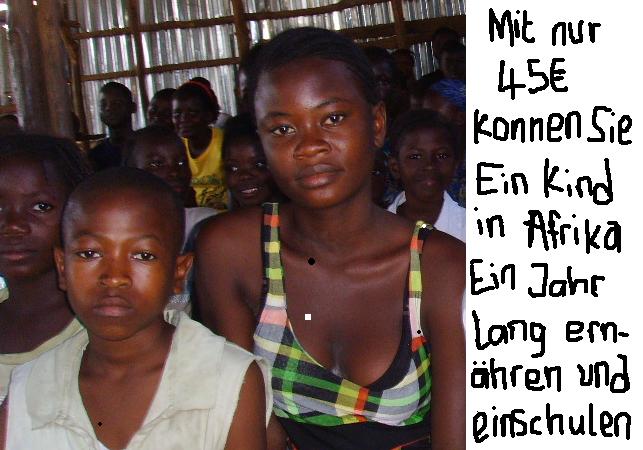 Mit nur
45€
konnen Sie
Ein Kind
in Afrika
Ein Jahr
Lang ern-
ähren und
einschulen